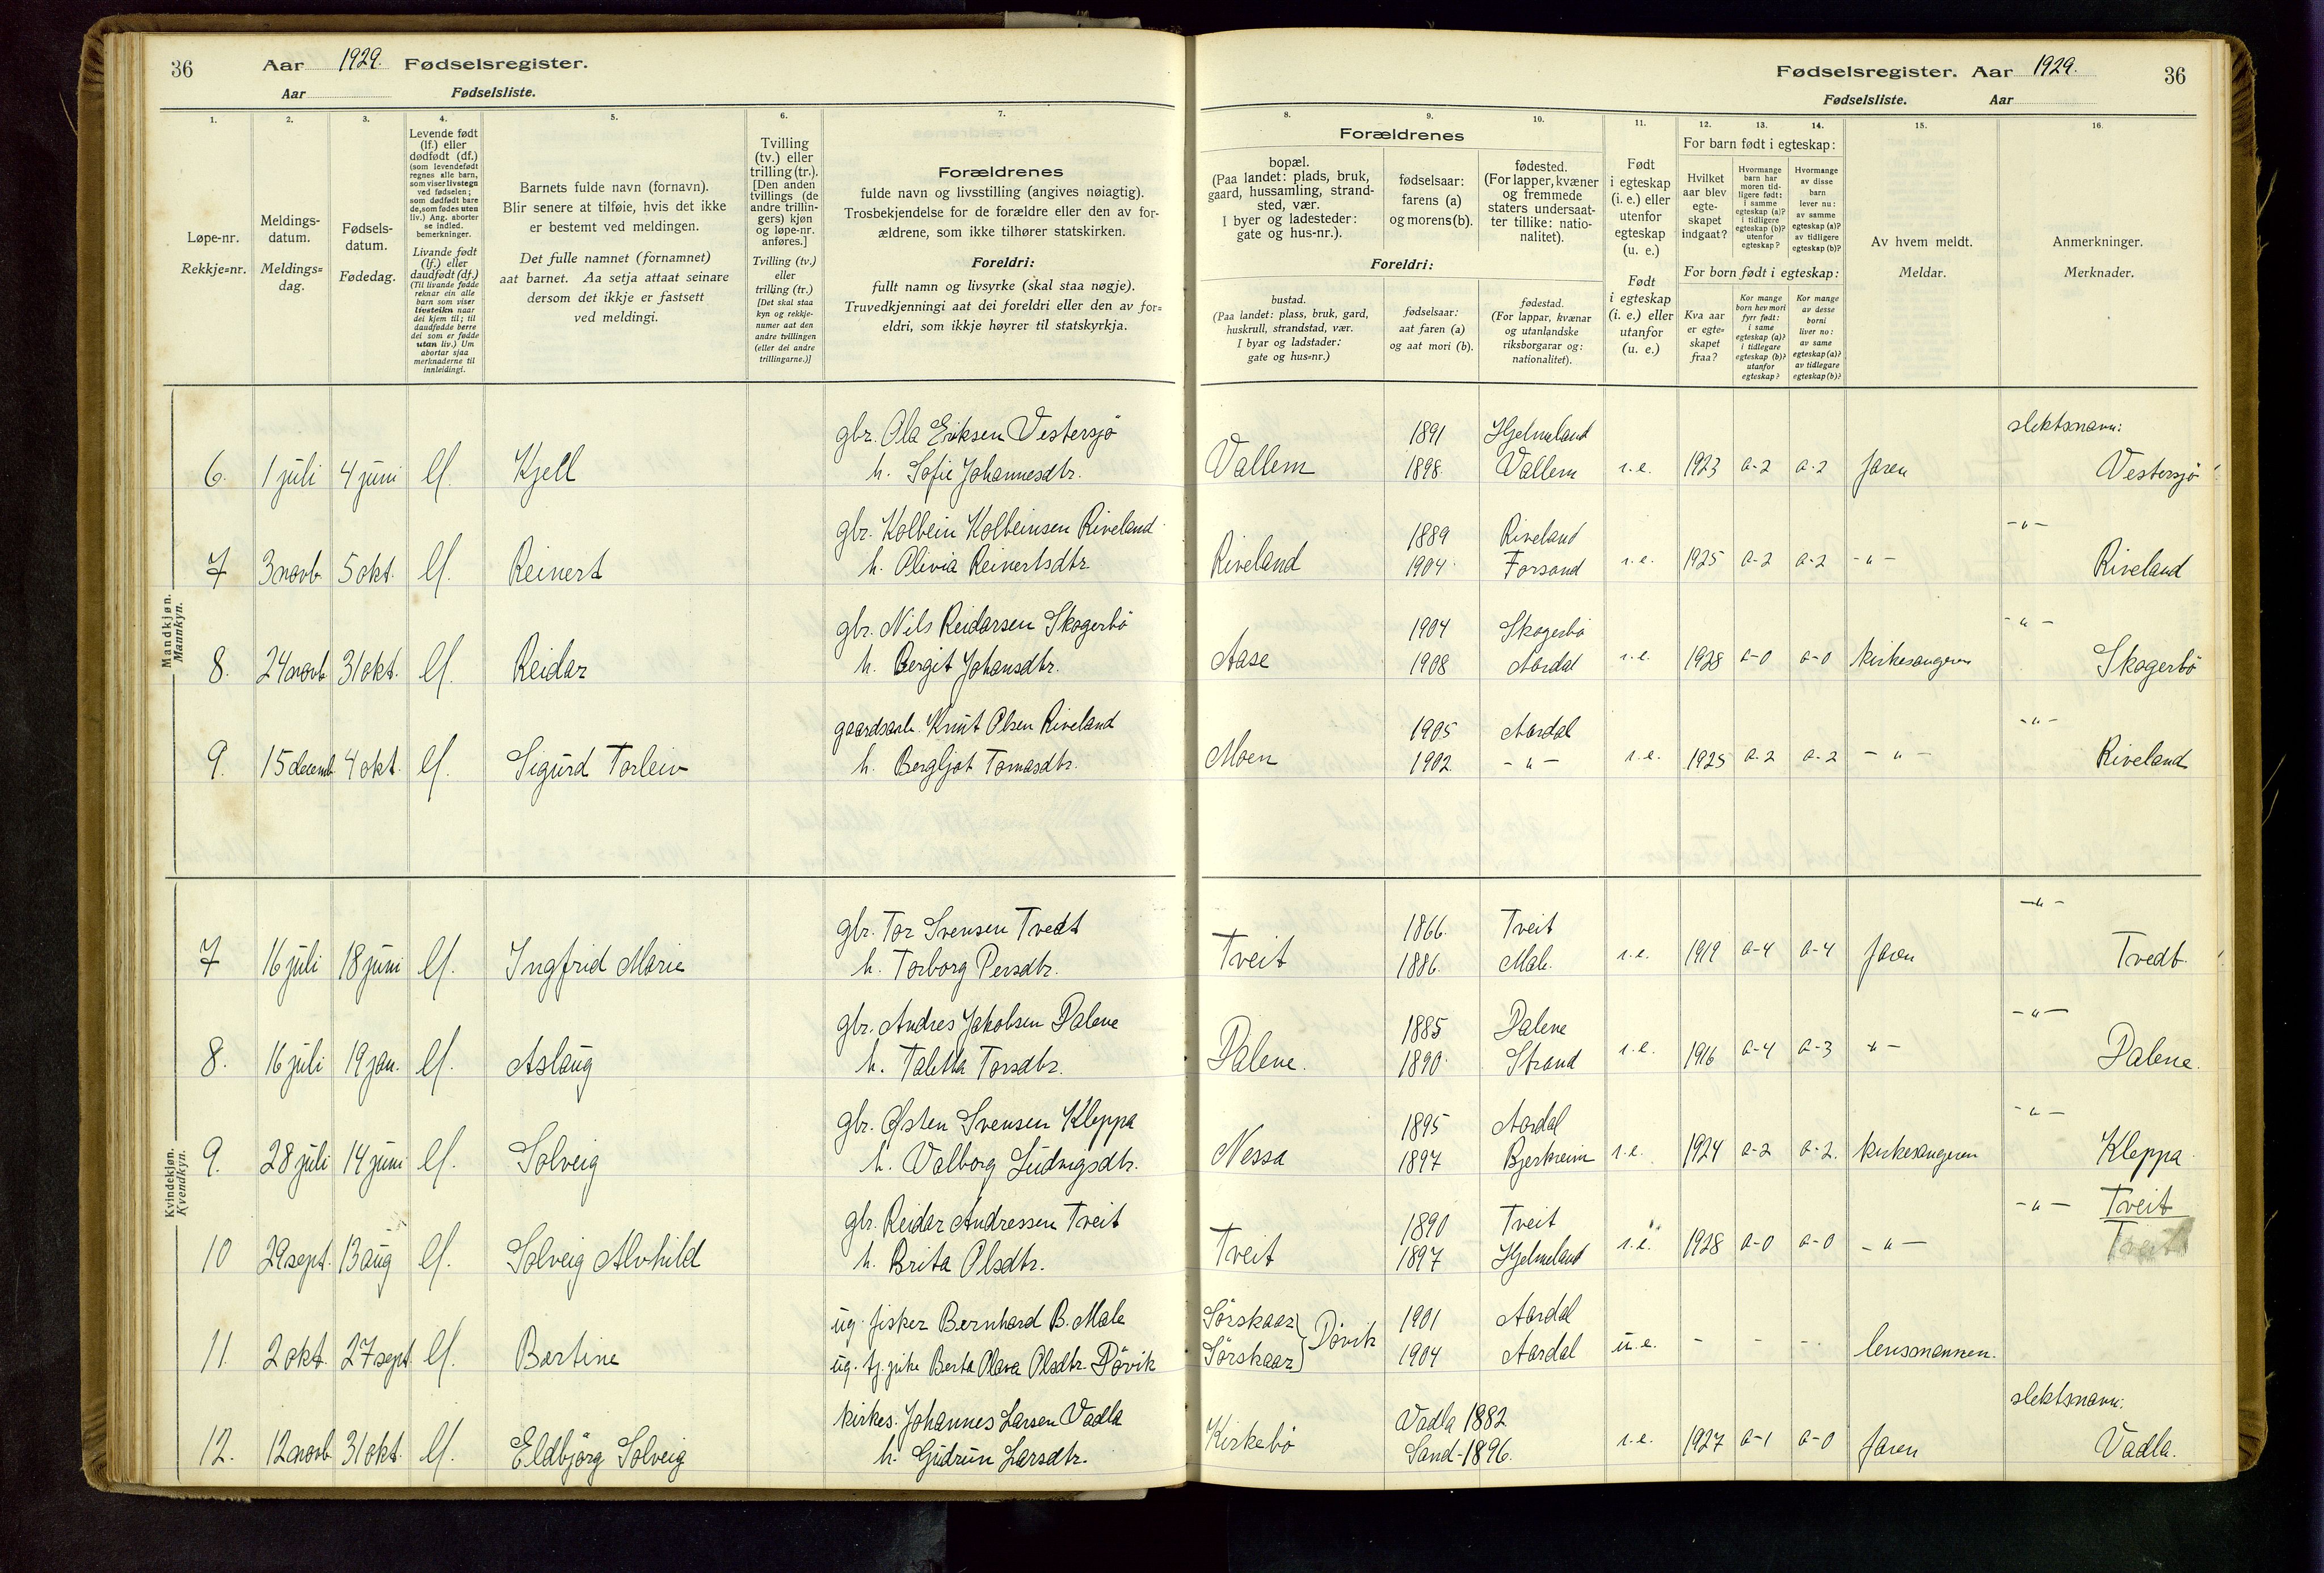 36 Aar 1929. Fødselsregister.
Aar Fødselsliste.
Fødselsregister. Aar 1929. 36
Fødselsliste. Aar
1.
Løpe-nr.
Rekkje=nr.
2.
Meldings-
datum.
Meldings=
dag.
3.
Fødsels-
datum.
Fødedag.
4.
Levende født
(lf.) eller
dødfødt (df.)
(som levendefødt
regnes alle barn,
som viser livstegn
ved fødselen;
som dødfødt bare
de, som fødes uten
liv.) Ang. aborter
se indled.
bemerkninger.
Livande født
(lf.) eller
daudfødt (df.)
(Til livande fødde
reknar ein alle
barn som viser
livsteikn naar
dei kjem til; til
daudfødde berre
dei som er fødde
utan liv.) Um
abortar sjaa
merknaderne til
innleidingi.
5.
Barnets fulde navn (fornavn).
Blir senere at tilføie, hvis det ikke
er bestemt ved meldingen.
Det fulle namnet (fornamnet)
aat barnet. Aa setja attaat seinare
dersom det ikkje er fastsett
ved meldingi.
6.
Tvilling
(tv.) eller
trilling (tr.).
[Den anden
tvillings (de
andre trillin-
gers) kjøn
og løpe-nr.
anføres.]
Tvilling (tv.)
eller
trilling (tr.)
[Det skal staa
kyn og rekkje-
numer aat den
andre tvillingen
(eller dei andre
trillingarne.)]
7.
Forældrenes
fulde navn og livsstilling (angives nøiagtig).
Trosbekjendelse for de forældre eller den av for-
ældrene, som ikke tilhører statskirken.
Foreldri:
fullt namn og livsyrke (skal staa nøgje).
Truvedkjenningi aat dei foreldri eller den av for=
eldri, som ikkje høyrer til statskyrkja.
8. 9. 10.
Forældrenes
bopæl.
(Paa landet: plads, bruk,
gaard, hussamling, strand-
sted, vær.
I byer og ladesteder:
gate og hus-nr.).
fødselsaar:
farens (a)
og morens (b).
fødested.
(For lapper, kvæner
og fremmede
staters undersaat-
ter tillike: natio-
nalitet).
Foreldri:
bustad.
(Paa landet: plass, bruk, gard,
huskrull, strandstad, vær.
I byar og ladstader:
gate og hus=nr.)
fødselsaar:
aat faren (a)
og aat mori (b).
fødestad.
(For lappar, kvænar
og utanlandske
riksborgarar og:
nationalitet).
11.
Født
i egteskap
(i. e.) eller
utenfor
egteskap
(u. e.)
Født
i egteskap
(i. e.) eller
utanfor
(u. e.)
12. 13. 14.
For barn født i egteskap:
Hvilket
aar blev
egte-
skapet
indgaat?
Hvormange
barn har
moren tid-
ligere født:
i samme
egteskap (a)?
i tidligere
egteskap (b)?
utenfor
egteskap?
Hvormange
av disse
barn
lever nu:
av samme
egteskap (a)?
av tidligere
egteskap (b)?
For born født i egteskap:
Kva aar
er egte=
skapet
fraa?
Kor mange
born hev mori
fyrr født:
i same
egteskap (a)?
i tidlegare
egteskap (b)?
utanfor
egteskap?
Kor mange
av desse
borni
liver no:
av same
egteskap (a)?
av tidlegare
egteskap (b)?
15.
Av hvem meldt.
Meldar.
16.
Anmerkninger.
Merknader.
Mandkjøn.
Mannkyn.
gbr. Ola Eriksen Vestersjö 1891 Hjelmeland slektsnavn:
6. 1 juli 4 juni lf. Kjell h. Sofie Johannesdtr. Vallem 1898. Vallem i.e. 1923 a-2 a-2 faren Vestersjö
gbr. Kolbein Kolbeinsen Riveland 1889 Riveland -"-
7 3 novb. 5 okt. lf. Reinert h. Olivia Reinertsdtr. Riveland 1904 Forsand i.e. 1925 a-2 a-2 -"- Riveland
gbr. Nils Reidarsen Skogerbö 1904 Skogerbö -"-
8. 24 novb. 31 okt. lf. Reidar h. Bergit Johansdtr. Aase 1908 Aardal i.e. 1928 a-0 a-0 kirkesangeren Skogerbö
gaardsarb. Knut Olsen Riveland 1905 Aardal -"-
9. 15 decemb. 4 okt. lf. Sigurd Torleiv h. Bergljot Tomasdtr. Moen 1902. -"- i.e. 1925 a-2 a-2 -"- Riveland
Kvindekjøn.
Kvendkyn.
gbr. Tor Svensen Tvedt 1866. Tveit -"-
7 16 juli 18 juni lf. Ingfrid Marie h. Torborg Persdtr. Tveit 1886. Male. i.e. 1919 a-4 a-4 faren Tvedt.
gbr. Andres Jakobsen Dalene 1885 Dalene -"-
8. 16 juli 19 jan. lf. Aslaug h. Taletta Torsdtr. Dalene. 1890 Strand i.e. 1916 a-4 a-3 -"- Dalene.
gbr. Østen Svensen Kleppa 1895 Aardal -"-
9. 28 juli 14 juni lf. Solveig h. Valborg Ludvigsdtr. Nessa 1897 Bjerkreim i.e. 1924 a-2 a-2. kirkesangeren Kleppa
gbr. Reidar Andressen Tveit 1890 Tveit -"- Tveit
10 29 sept. 13 aug lf. Solveig Alvhild h. Brita Olsdtr. Tveit 1897 Hjelmeland i.e. 1928 a-0 a-0 -"- Tveit
ug. fisker Bernhard B. Male Sörskaar 1901 Aardal
11. 2 okt. 27 sept lf. Bertine ug. tj. pike Berta Olava Olsdtr. Dövik Sörskaar Dövik 1904 Aardal u.e. - - - lensmannen.
kirkes. Johannes Larsen Vadla Vadla 1882 slektsnavn:
12. 12 novb. 31 okt. lf. Eldbjörg Solveig h. Gudrun Larsdtr. Kirkebö Sand-1896. i.e. 1927 a-1 a-0 faren Vadla.